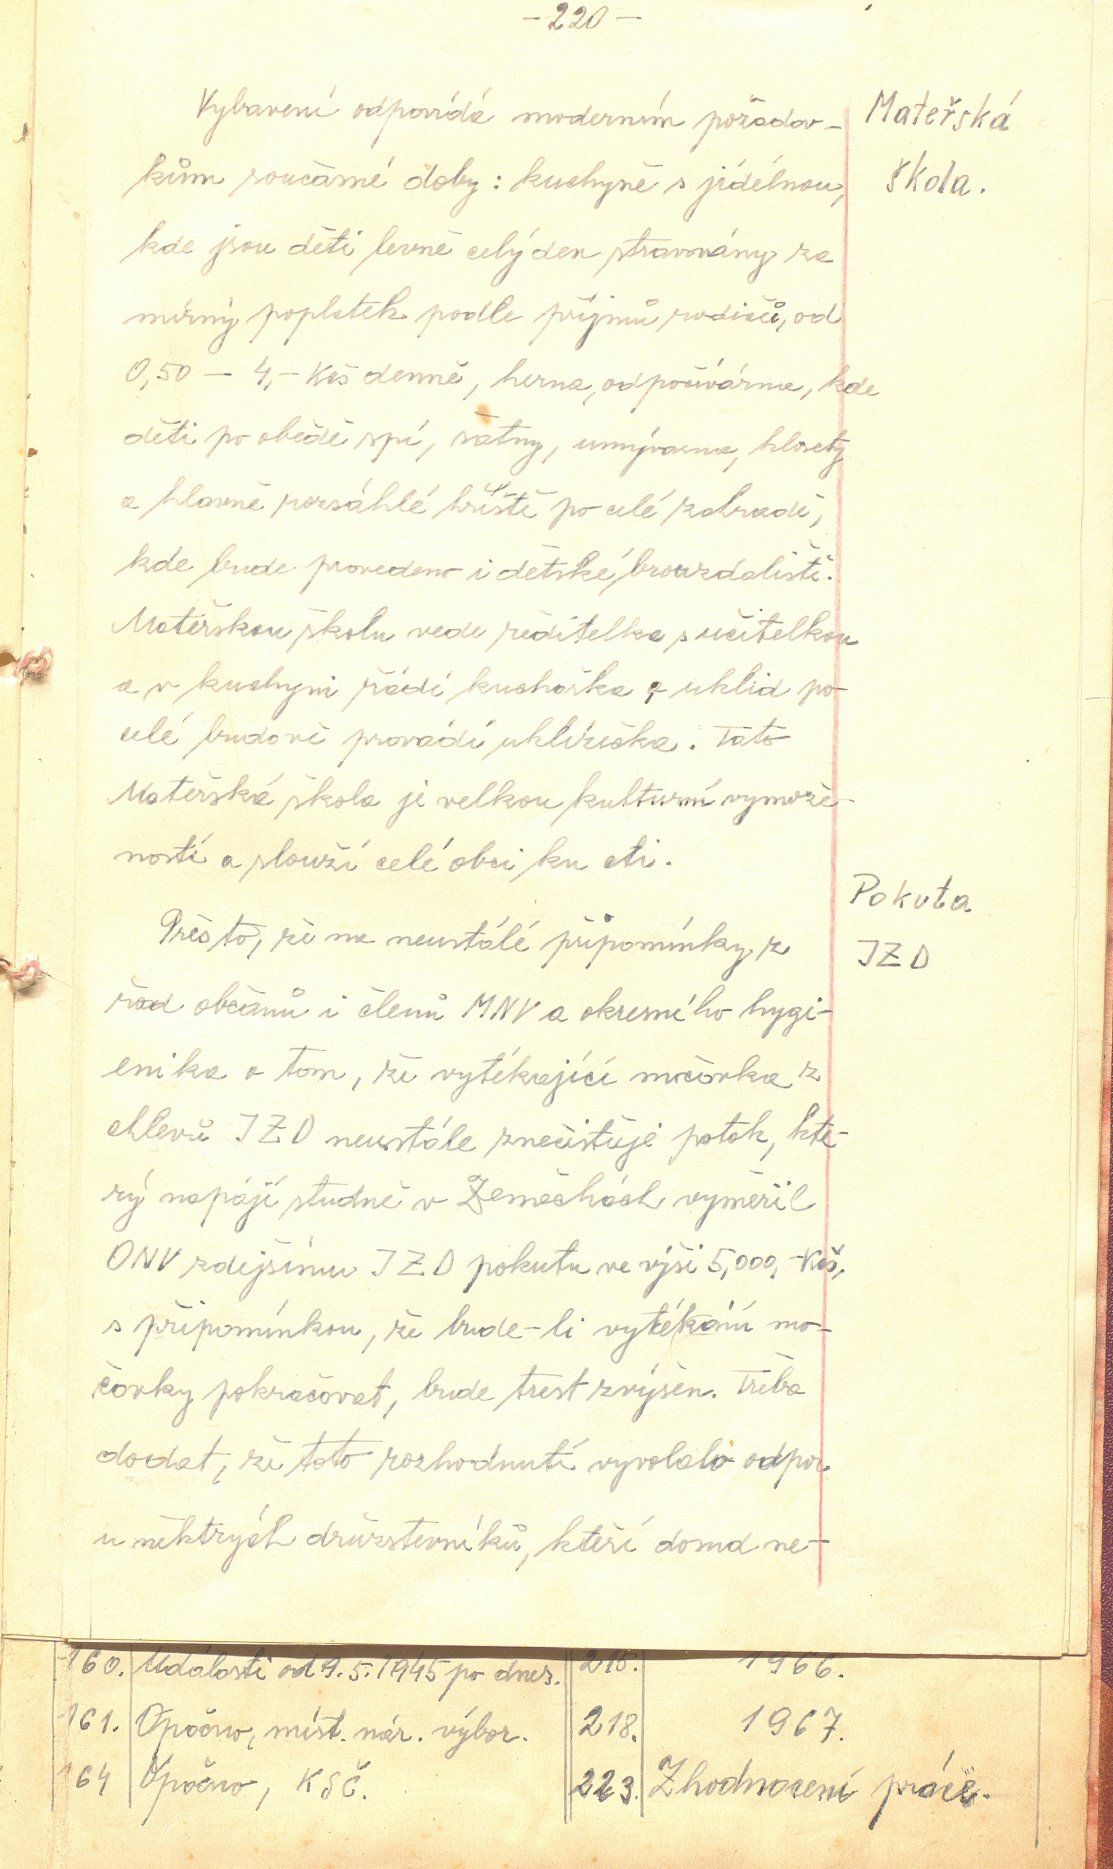 - 220 -
Vybavení odpovídá moderním požadav-
Mateřská
kům současné doby: kuchyně s jídélnou,
škola.
kde jsou děti levně celý den stravovány za
mírný poplatek podle příjmů rodičů, od
0,50 - 4,- Kčs denně, herna, odpočívárna, kde
děti po obědě spí, šatny, umývárna, klosety
a hlavně rozsáhlé hřiště po celé zahradě,
kde bude provedeno i dětské brouzdaliště.
Mateřskou školu vede ředitelka s učitelkou
a v kuchyni řádí kuchařka a uklid po
celé budově provádí uklízečka. Tato
Mateřská škola je velkou kulturní vymože-
ností a slouží celé obci ku cti.
Pokuta
Přes to, že na neustálé připomínky z
JZD
řad občanů i členů MNV a okresního hygi-
enika o tom, že vytékající močovka z
chlevů JZD neustále znečistuje potok, kte-
rý napájí studně v Zeměchách vyměřil
ONV zdejšímu JZD pokutu ve výši 5,000,- Kčs,
s připomínkou, že bude-li vytékání mo-
čovky pokračovat, bude trest zvýšen. Třeba
dodat, že toto rozhodnutí vyvolalo odpor
u něktrých družstevníků, kteří dosud ne-
160. Události od 9.5.1945 po dnes. 216. 1966.
161. Opočno, míst. nár. výbor. 218. 1967.
164 Opočno, KSČ. 223. Zhodnocení práce.